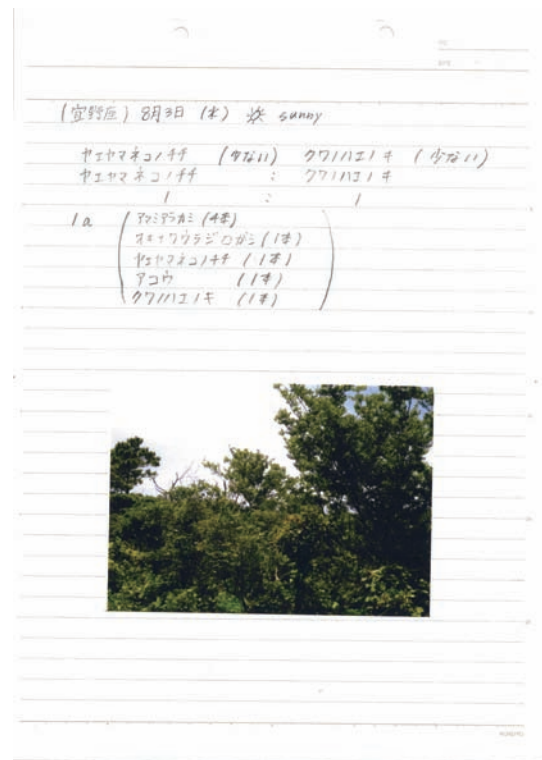 (宜野座) 8月3日 (水) sunny
ヤエヤマネコノチチ (少ない) クワノハエノキ (少ない)
ヤエヤマネコノチチ : クワノハエノキ
1 : 1
1a
アマミアラカシ (4本)
オキナワウラジロガシ (1本)
ヤエヤマネコノチチ (1本)
アコウ (1本)
クワノハエノキ (1本)